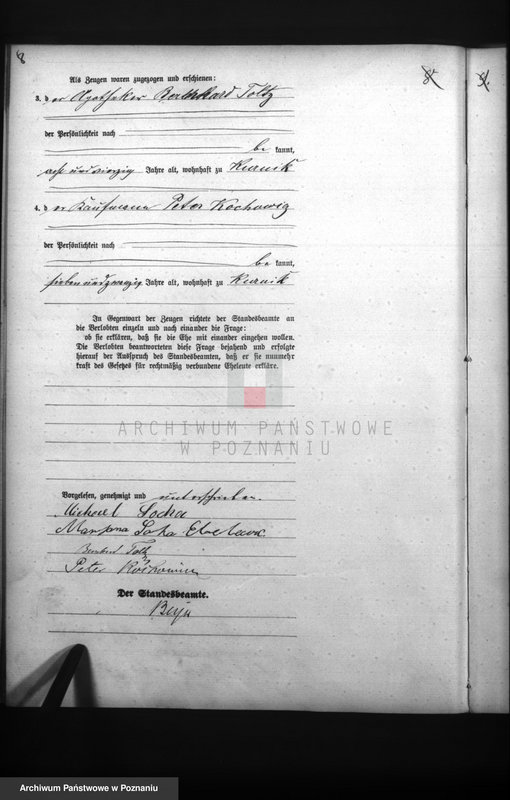 8
8.
9.
Als Zeugen waren zugezogen und erschienen:
3. der Apotheker Bernhard Toltz
der Persönlichkeit nach
be kannt,
acht und vierzig Jahre alt, wohnhaft zu Kurnik
4. der Kaufmann Peter
der Persönlichkeit nach
be kannt,
sieben und zwanzig Jahre alt, wohnhaft zu Kurnik
In Gegenwart der Zeugen richtete der Standesbeamte an
die Verlobten einzeln und nach einander die Frage:
ob sie erklären, daß sie die Ehe mit einander eingehen wollen.
Die Verlobten beantworteten diese Frage bejahend und erfolgte
hierauf der Ausspruch des Standesbeamten, daß er sie nunmehr
kraft des Gesetzes für rechtmäßig verbundene Eheleute erkläre.
ARCHIWUM PAŃSTWOWE
W POZNANIU
Vorgelesen, genehmigt und unterschrieben.
Michael Socha
Maryana Socha
Toltz
Peter
Der Standesbeamte.
Archiwum Państwowe w Poznaniu